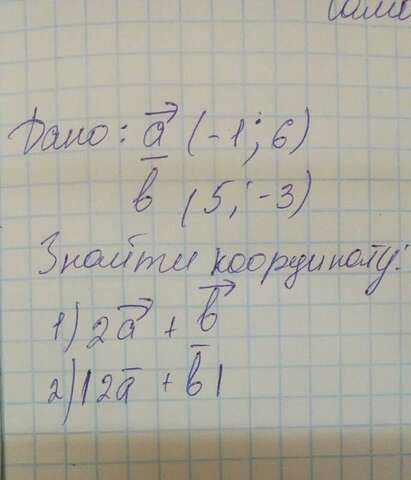 Дано: a⃗ (-1; 6)
b̅ (5; -3)
Знайти координату:
1) 2a⃗ + b⃗
2) |2a̅ + b̅|